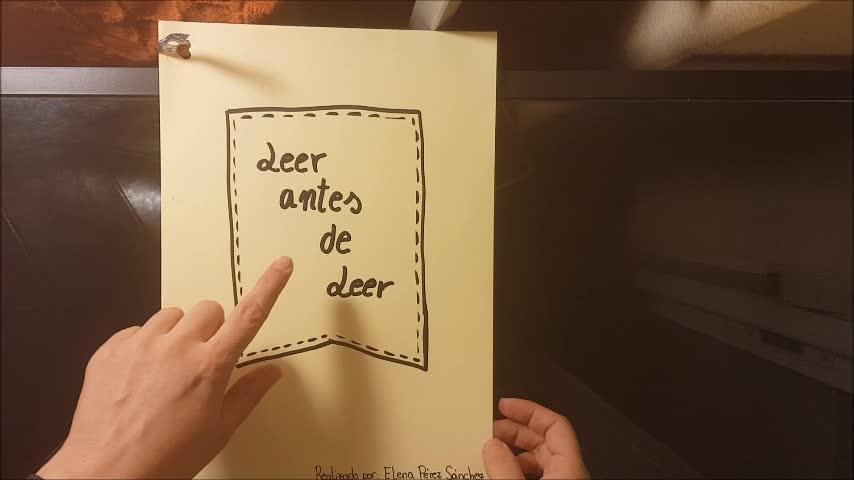 Leer
antes
de
Leer
Realizado por: Elena Pérez Sánchez